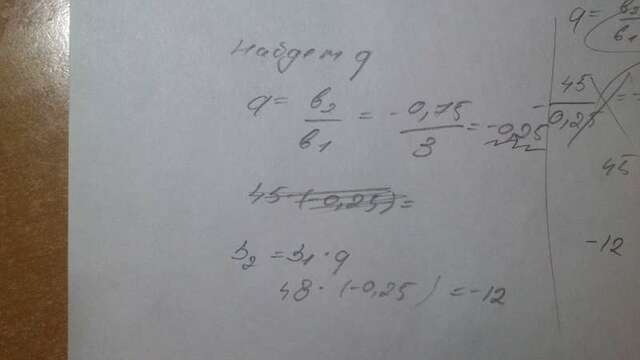 найдем q
q = b₂/b₁ = -0,75/3 = -0,25
45 · (-0,25) =
b₂ = b₁ · q
48 · (-0,25) = -12
q = b₂/b₁
-45/0,25 = -
45
-12